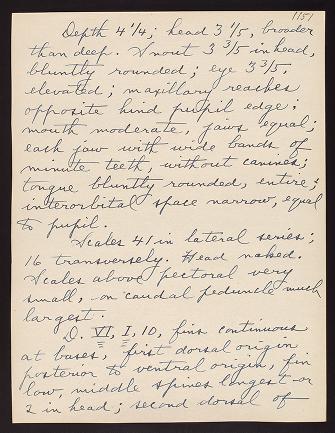 1151
Depth 4 1/4; head 3 1/5, broader
than deep. Snout 3 3/5 in head,
bluntly rounded; eye 3 3/5,
elevated; maxillary reaches
opposite hind pupil edge;
mouth moderate, jaws equal;
each jaw with wide bands of
minute teeth, without canines;
tongue bluntly rounded, entire;
interorbital space narrow, equal
to pupil.
Scales 41 in lateral series;
16 transversely. Head naked.
Scales above pectoral very
small, on caudal peduncle much
largest.
D. VI, I, 10, fins continuous
at bases, first dorsal origin
posterior to ventral origin, fin
low, middle spines longest - or
2 in head; second dorsal of